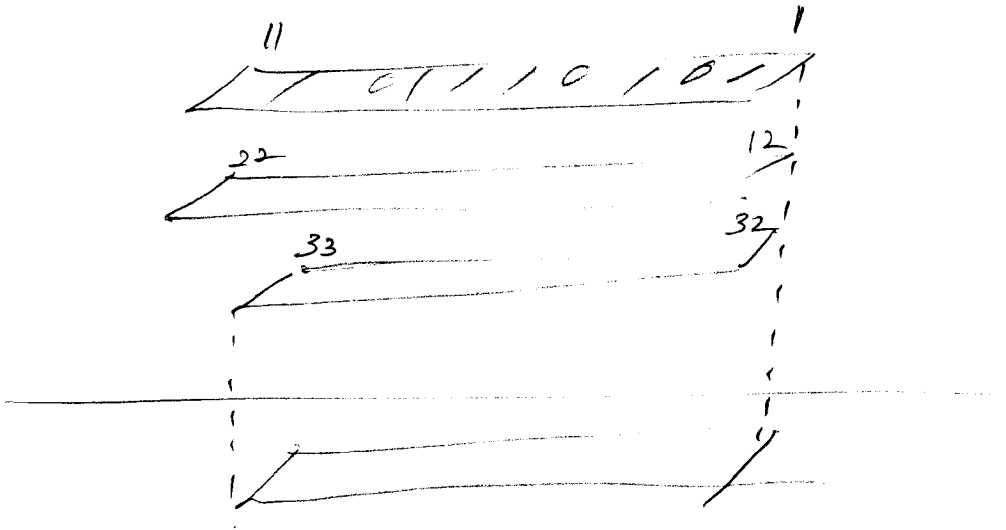 11 1
/ 0 1 1 1 0 1 0 1
22 12
33 32